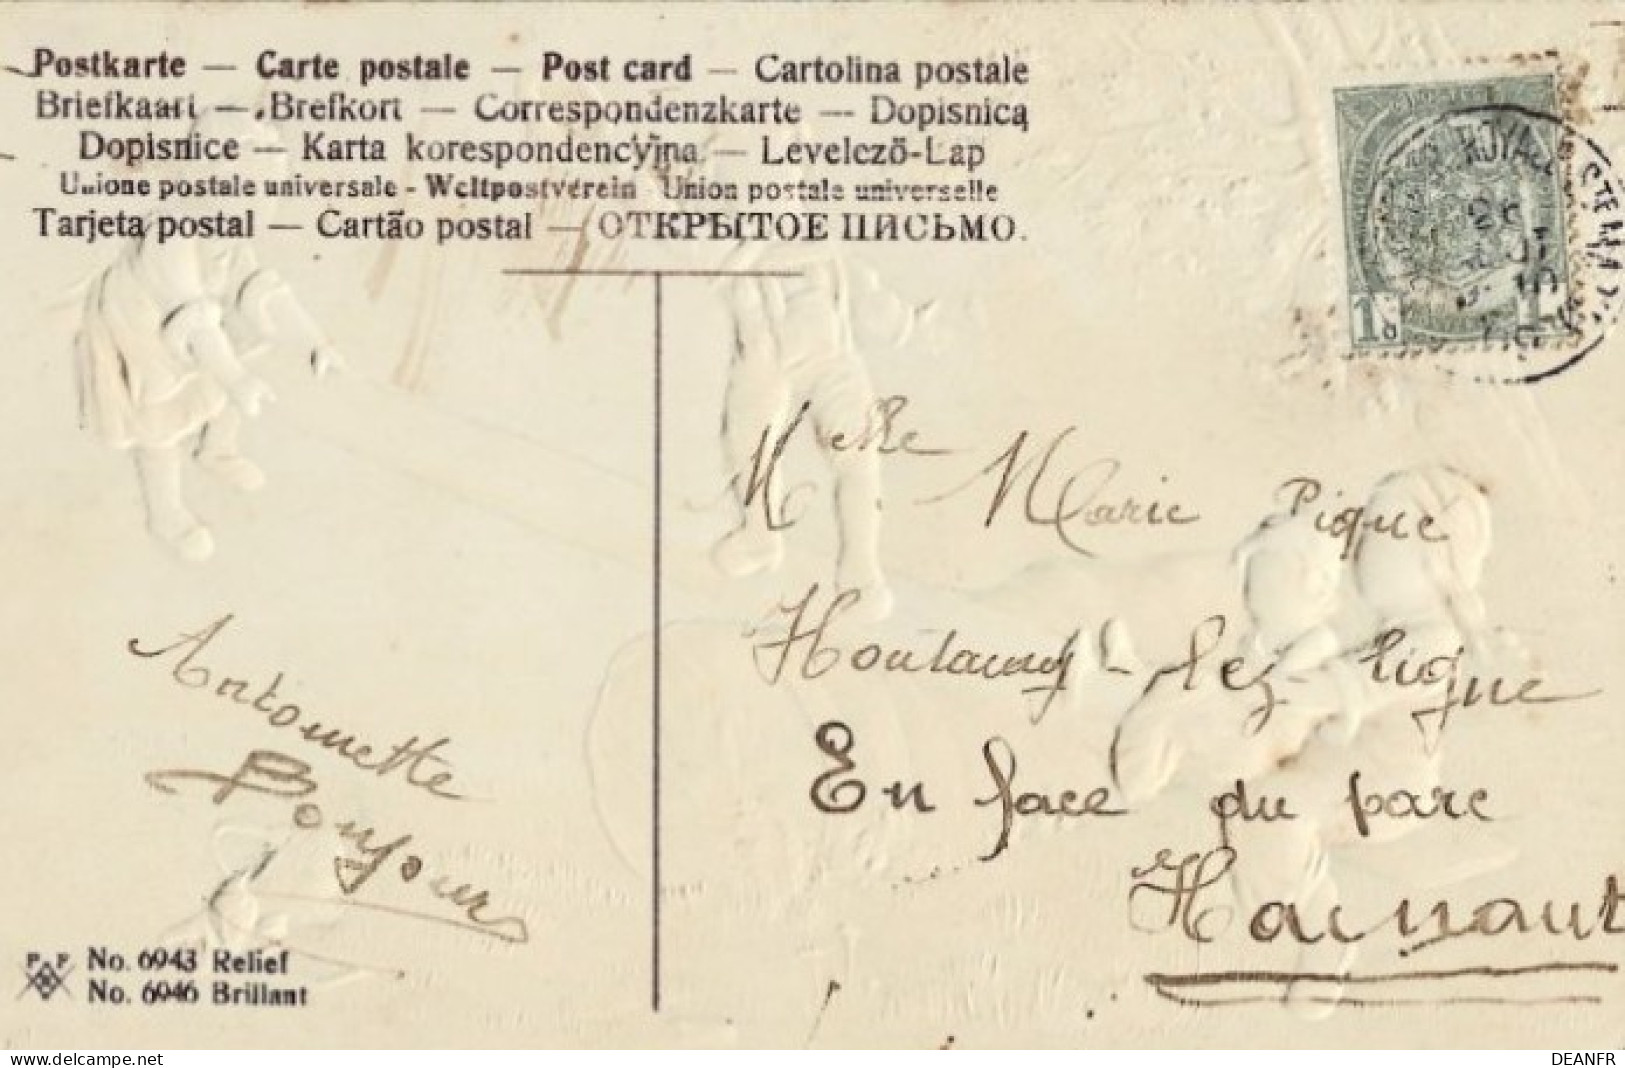 Postkarte — Carte postale — Post card — Cartolina postale
Briefkaart — Brefkort — Correspondenzkarte — Dopisnica
Dopisnice — Karta korespondencyjna — Levelező-Lap
Unione postale universale - Weltpostverein - Union postale universelle
Tarjeta postal — Cartão postal — ОТКРЫТОЕ ПИСЬМО.
1
Melle Marie Pique
Houtaing-lez-ligne
En face du parc
Hainaut
Antoinette
Bonjour
P F
No. 6943 Relief
No. 6946 Brillant
https://www.delcampe.net
DEANFR